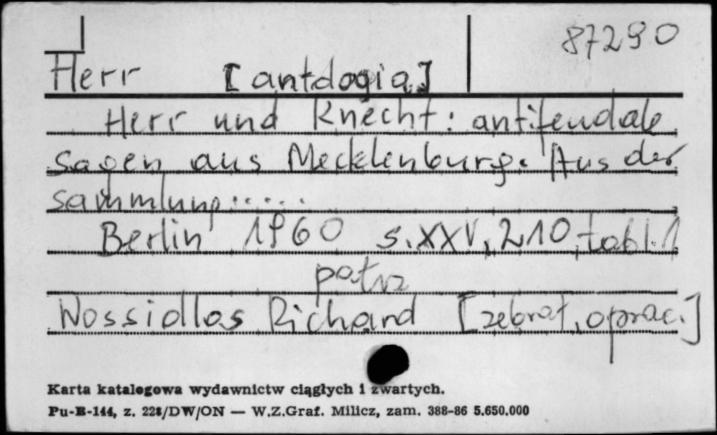 87290
Herr [antologia]
Herr und Knecht: antifeudale
Sagen aus Mecklenburg. Aus der
Sammlung.....
Berlin 1960 s. XXV, 210, tabl. 1
patrz
Wossidlos Richard [zebrał, oprac.]
Karta katalogowa wydawnictw ciągłych i zwartych.
Pu-B-144, z. 228/DW/ON — W.Z.Graf. Milicz, zam. 388-86 5.650.000